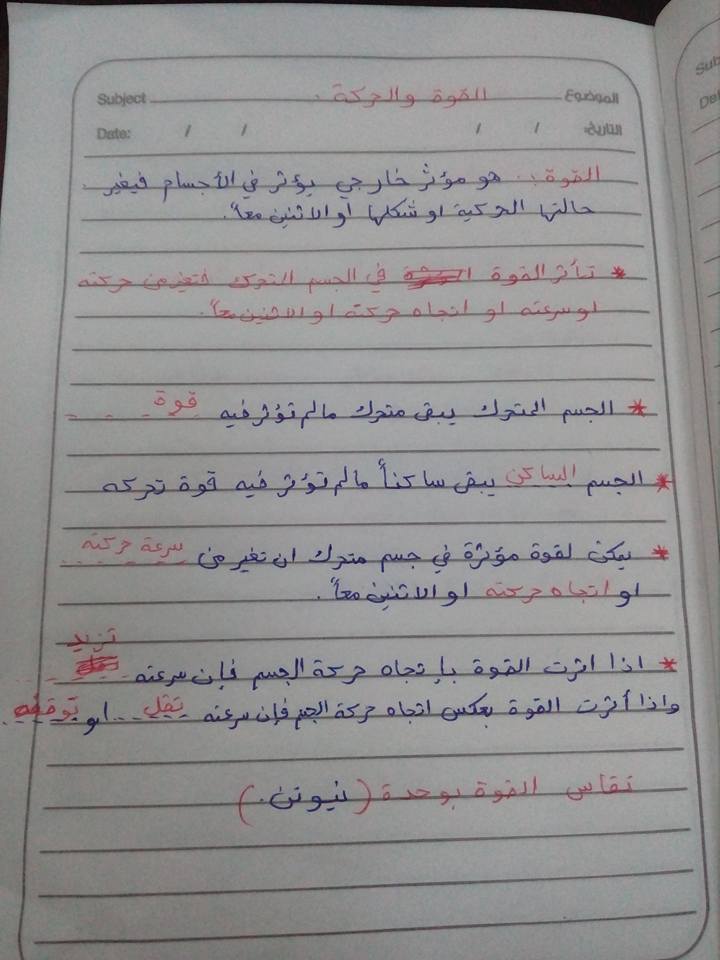 Subject القوة والحركة . الموضوع
Date: / / / / التاريخ
القوة :. هو مؤثر خارجي يؤثر في الأجسام فيغير
حالتها الحركية او شكلها أو الاثنين معاً.
* تأثر القوة في الجسم المتحرك فتغير من حركته
او سرعته او اتجاه حركته او الاثنين معاً.
* الجسم المتحرك يبقى متحرك مالم تؤثر فيه قوة
* الجسم الساكن يبقى ساكناً مالم تؤثر فيه قوة تحركه
* يمكن لقوة مؤثرة في جسم متحرك ان تغير من سرعة حركته
او اتجاه حركته او الاثنين معاً.
تزيد
* اذا اثرت القوة بإتجاه حركة الجسم فإن سرعته
واذا أثرت القوة بعكس اتجاه حركة الجسم فإن سرعته تقل او توقفه
تقاس القوة بوحدة (نيوتن.)
Sub
Dat